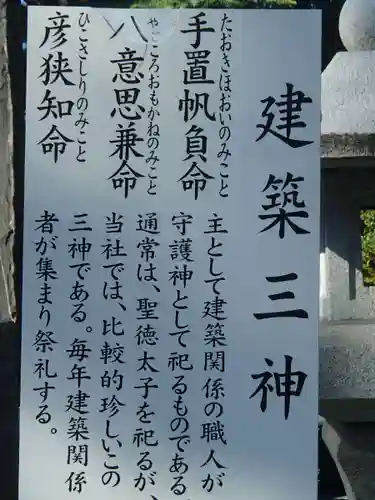 建築三神
手置帆負命
たおきほおいのみこと
八意思兼命
やごころおもかねのみこと
彦狭知命
ひこさしりのみこと
主として建築関係の職人が
守護神として祀るものである。
通常は、聖徳太子を祀るが、
当社では、比較的珍しいこの
三神である。毎年建築関係
者が集まり祭礼する。